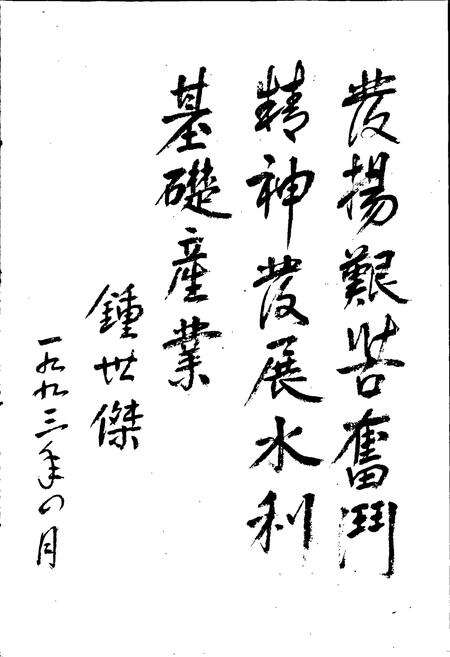 發揚艱苦奮鬥
精神發展水利
基礎產業
鍾世傑
一九九三年四月